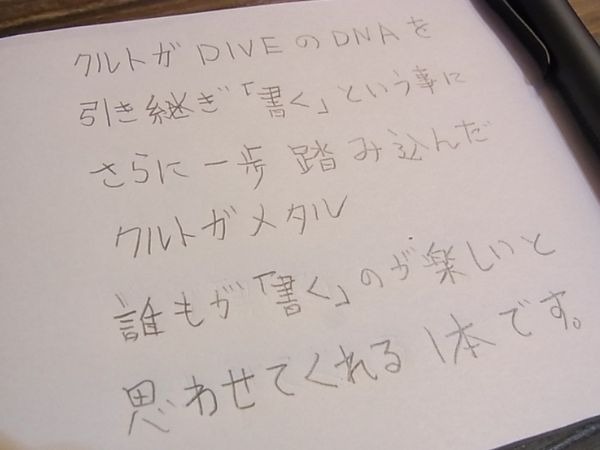 クルトガ DIVEのDNAを
引き継ぎ「書く」という事に
さらに一歩 踏み込んだ
クルトガメタル
誰もが「書く」のが楽しいと
思わせてくれる1本です。